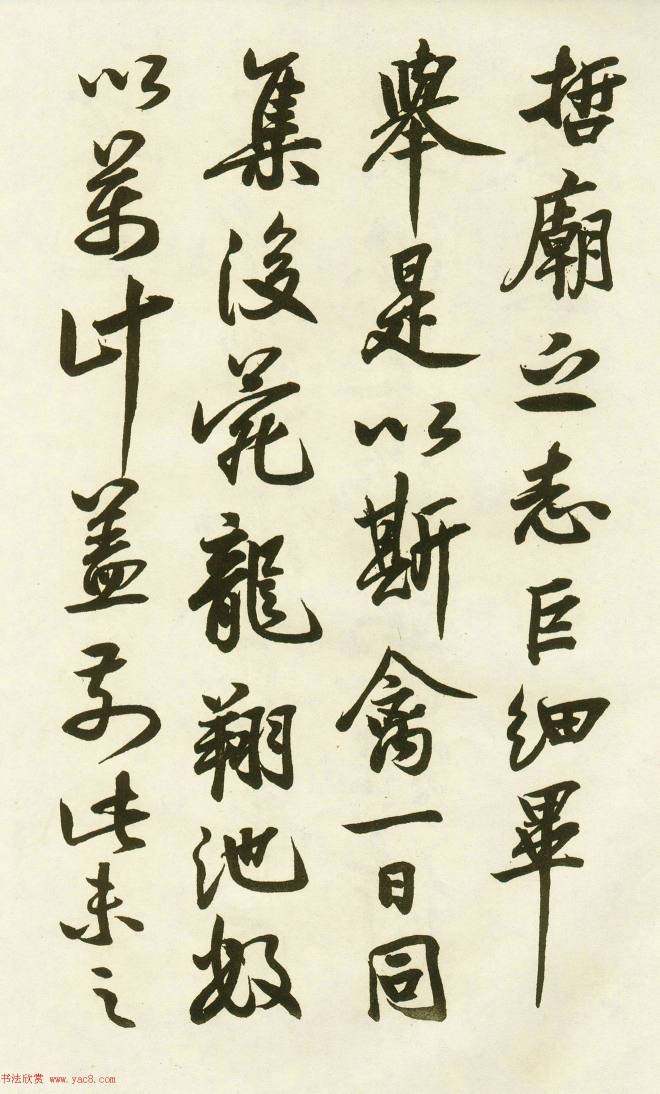 哲廟之志巨細畢
舉是以斯禽一日同
集後苑龍翔池數
以萬計蓋前此未之
书法欣赏 www.yac8.com